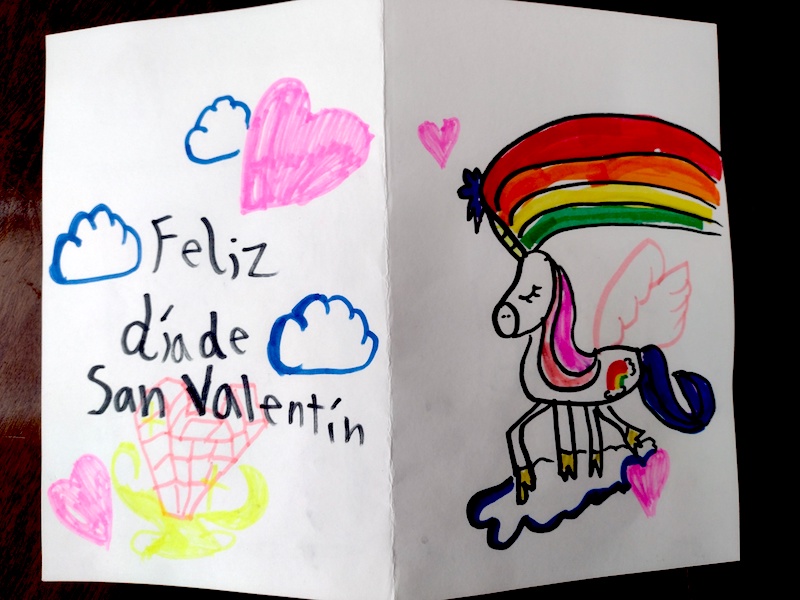 Feliz
día de
San Valentín